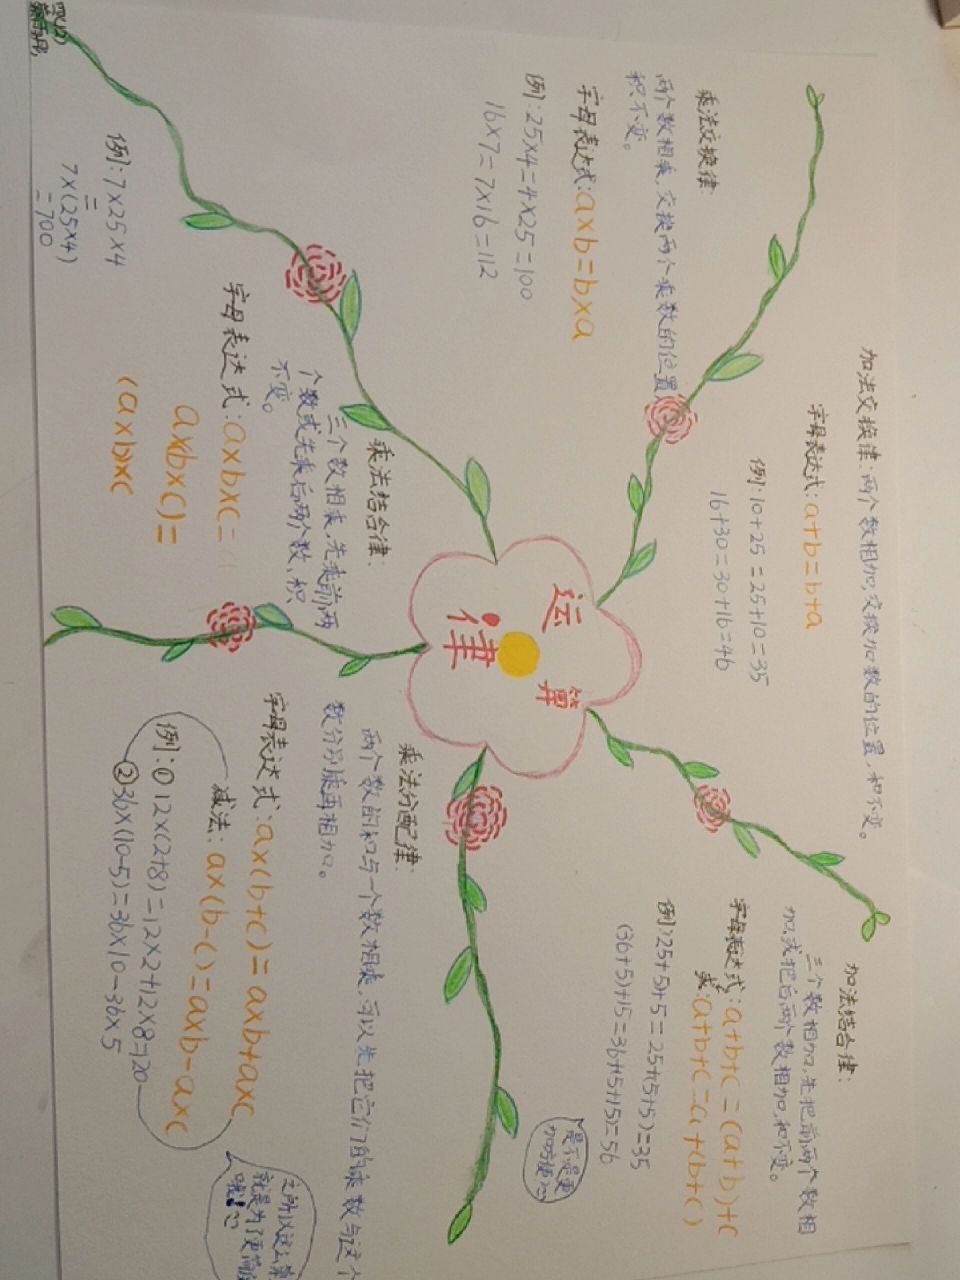 运算律
乘法交换律:
两个数相乘,交换两个乘数的位置
积不变。
字母表达式:a×b=b×a
例:25×4=4×25=100
16×7=7×16=112
加法交换律:两个数相加,交换加数的位置,积不变。
字母表达式:a+b=b+a
例:10+25=25+10=35
16+30=30+16=46
加法结合律:
三个数相加,先把前两个数相
加,或把后两个数相加,积不变。
字母表达式:a+b+c=(a+b)+c
或:a+b+c=a+(b+c)
例:(25+5)+5=25+(5+5)=35
(36+5)+15=36+(5+15)=56
是不是更
加方便
乘法结合律:
三个数相乘,先乘前两
个数或先乘后两个数,积
不变。
字母表达式:a×b×c=
a×b×c)=
(a×b×c
例:7×25×4
=
7×(25×4)
=700
乘法分配律:
两个数的和与一个数相乘,可以先把它们的乘数与这个
数分别乘再相加。
字母表达式:a×(b+c)=a×b+a×c
减法:a×(b-c)=a×b-a×c
例:①12×(2+8)=12×2+12×8=120
②36×(10-5)=36×10-36×5
之所以这么算
就是为了更简便
哦!